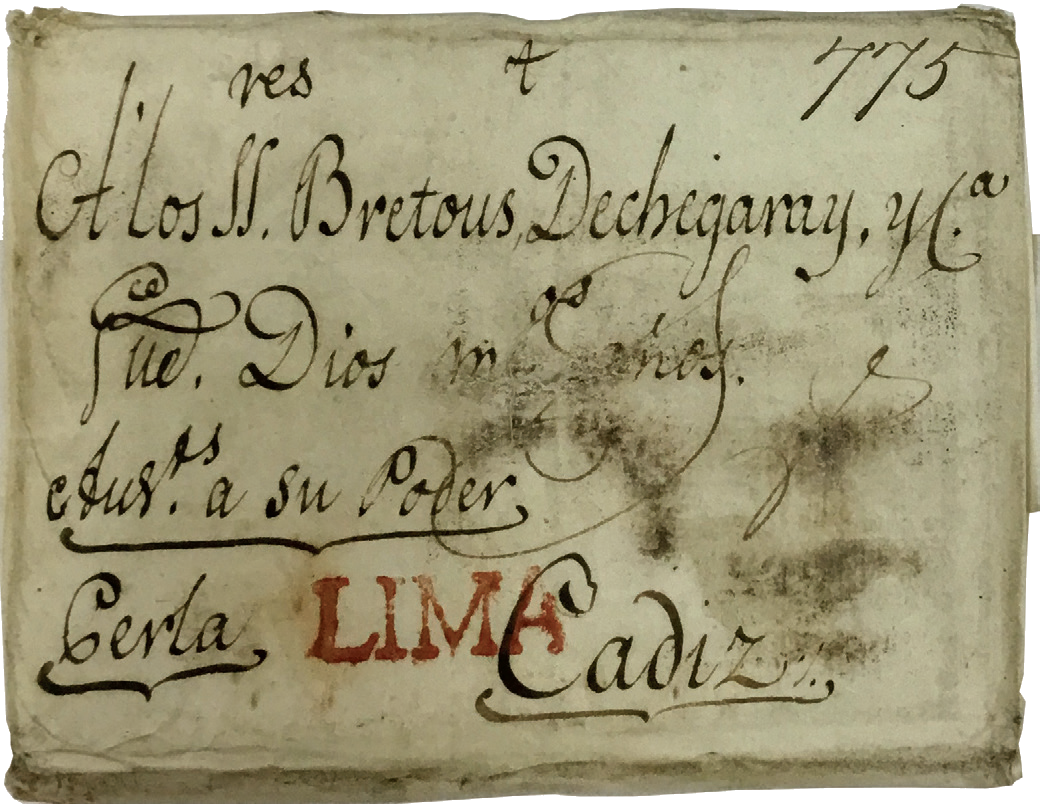 res + 775
A los SS. Bretous, Dechegaray, y C.a
gue. ce Dios ms. os años.
Aus.tes a su Poder
Perla LIMA Cadiz